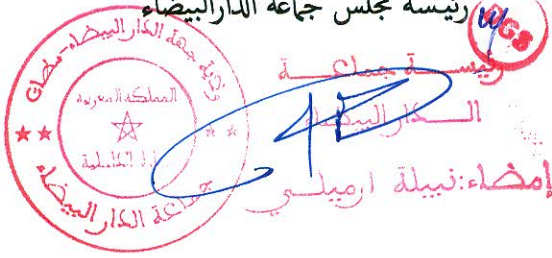 رئيسة مجلس جماعة الدارالبيضاء
DGS
رئيســة جماعــة
الــدار البيضاء
إمضاء:نبيلة ارميلــي
ولاية جهة الدار البيضاء - سطات
المملكة المغربية
وزارة الداخلية
جماعة الدار البيضاء